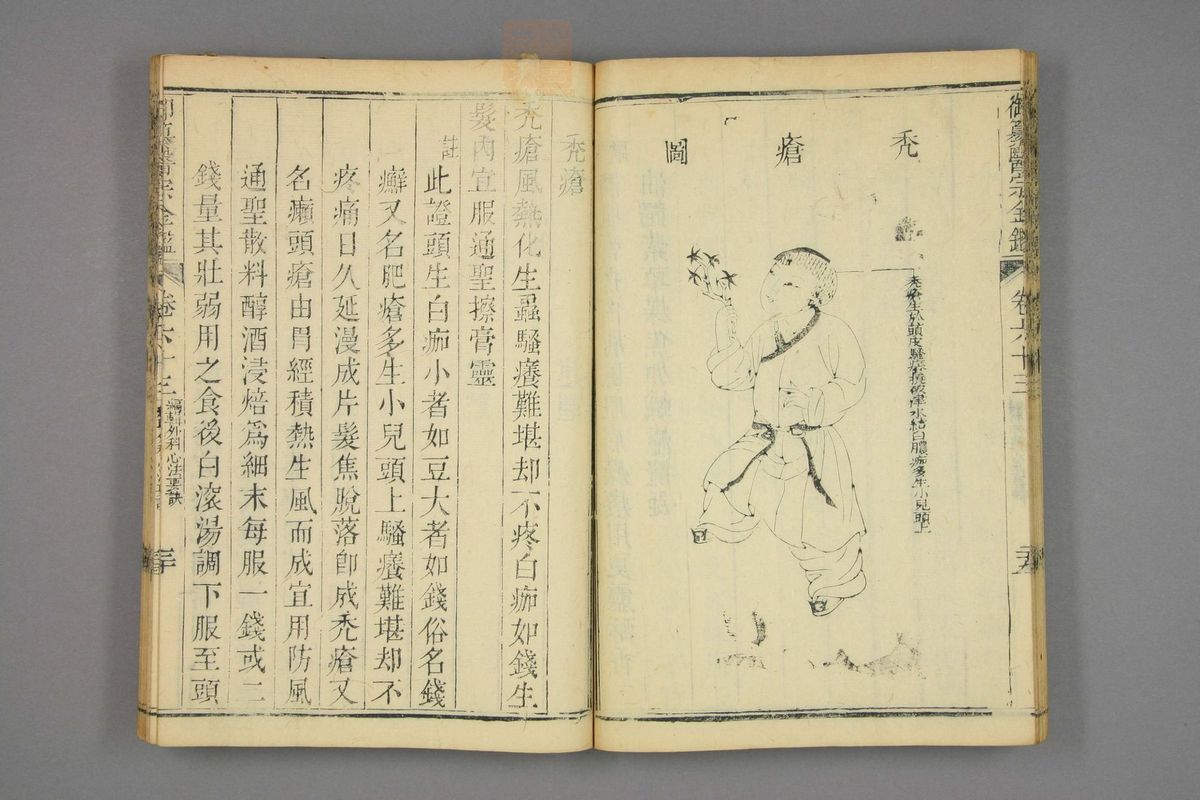 御纂醫宗金鑑 卷六十三
禿瘡圖
禿瘡生於頭皮騷癢抓破津水結白膿痂多生小兒頭上
禿瘡
禿瘡風熱化生蟲騷癢難堪却不疼白痂如錢生
髮內宜服通聖擦膏靈
註
此證頭生白痂小者如豆大者如錢俗名錢
癬又名肥瘡多生小兒頭上騷癢難堪却不
疼痛日久延漫成片髮焦脫落卽成禿瘡又
名癩頭瘡由胃經積熱生風而成宜用防風
通聖散料醇酒浸焙爲細末每服一錢或二
錢量其壯弱用之食後白滾湯調下服至頭
御纂醫宗金鑑 卷六十三 編輯外科心法要訣